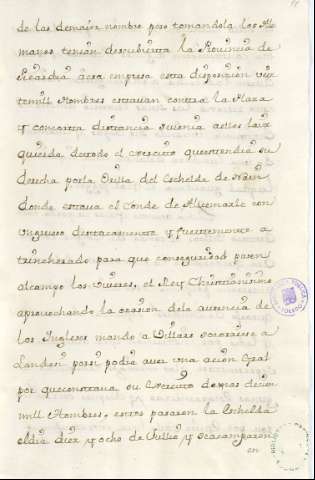 de los demas nombre pero tomandola los Ale
manes tenian descubierta la Provincia de
Picardia aesta empresa esta disposicion
temill Hombres estavan contra la Plaza
y concorta distancia
quierda detodo el exercito questendia su
derecha porla Orilla del Eschelde de
donde estava el Conde de Alvemarle con
ungrueso destacamento y fuertemente a
trincherado para que conseguridad pasen
alcampo los Viveres, el Rey Christianisimo
aprovechando la ocasion dela ausencia de
los Ingleses mando a Villars socorriese a
Landresi pero podia aver una acion Gral
por queconstava su Exercito demas decien
mill Hombres, estos pasaron la Eschelda
eldia diez y ocho de Jullio y seacamparon
en